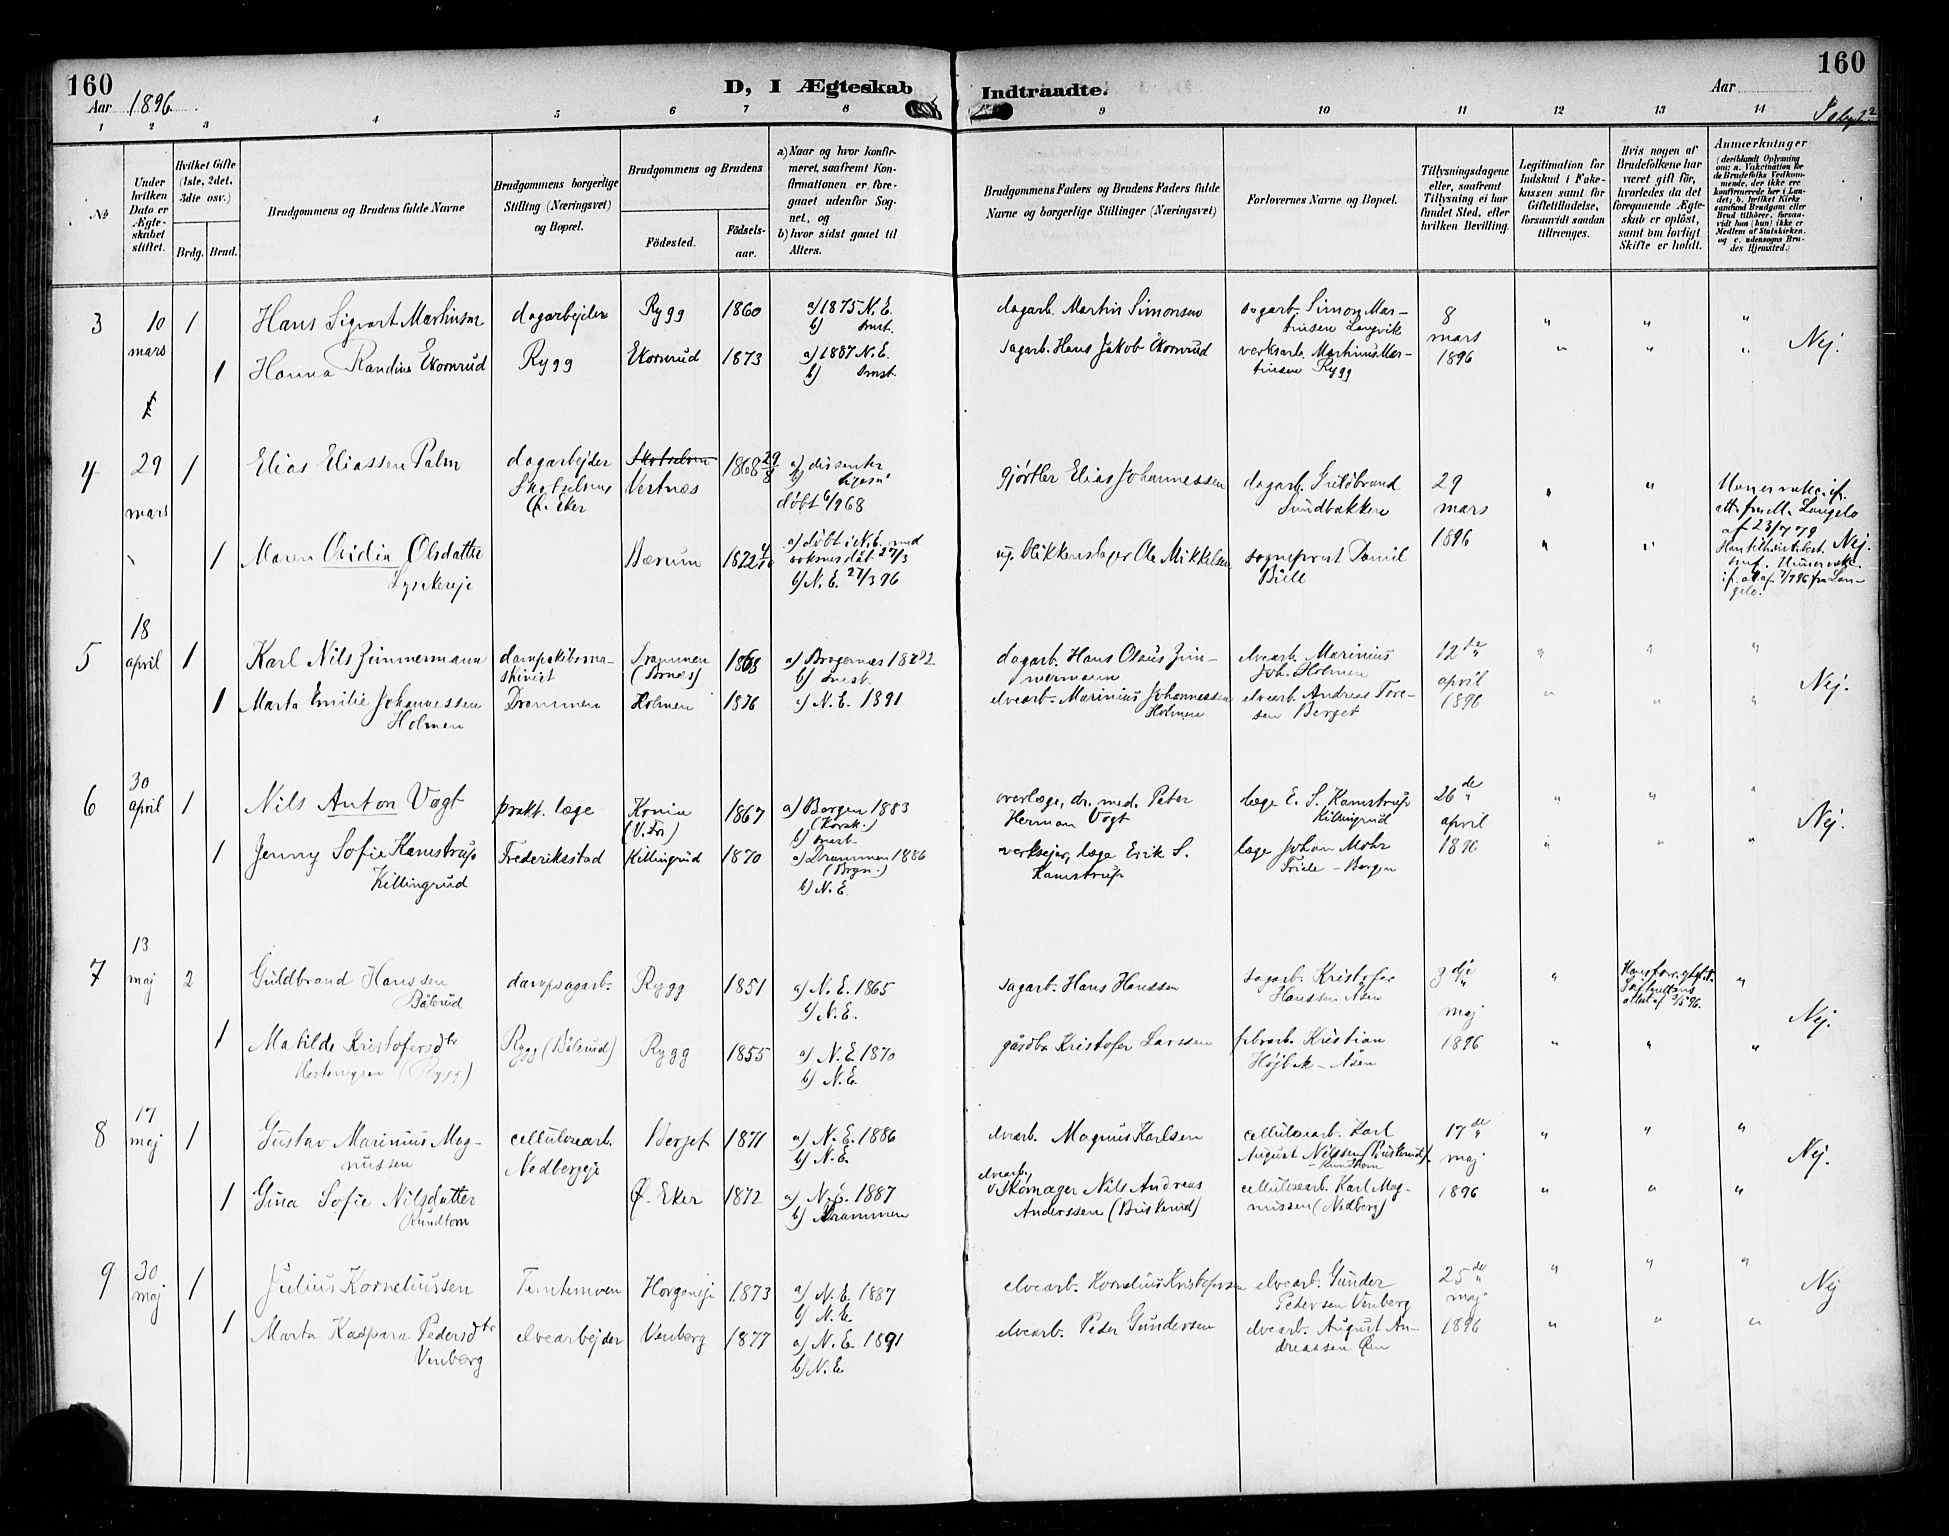 160
D, I Ægteskab
Indtraadte.
160
Aar 1896
Aar
1 2 3 4 5 6 7 8 9 10 11 12 13 14
No
Under hvilken Dato er Ægteskabet stiftet.
Hvilket Gifte (1ste, 2det, 3die osv.)
Brdg. Brud.
Brudgommens og Brudens fulde Navne
Brudgommens borgerlige Stilling (Næringsvei) og Bopæl.
Brudgommens og Brudens
Födested.
Födselsaar.
a) Naar og hvor konfirmeret, saafremt Konfirmationen er foregaaet udenfor Sognet, og
b) hvor sidst gaaet til Alters.
Brudgommens Faders og Brudens Faders fulde Navne og borgerlige Stillinger (Næringsvei)
Forlovernes Navne og Bopæl.
Tillysningsdagene eller, saafremt Tillysning ei har fundet Sted, efter hvilken Bevilling.
Legitimation for Indskud i Enkekassen samt Giftetilladelse, forsaavidt saadan tiltrænges.
Hvis nogen af Brudefolkene har været gift før, hvorledes da det foregaaende Ægteskab er oplöst, samt om lovligt Skifte er holdt.
Anmærkninger
3
10 mars
1
Hans Sigvart Martinsen
dagarbejder
Rygg
1860
a) 1875 N. E.
b) Smst.
dagarb. Martin Simonsen
sagarb. Simon Martinsen Langvik
8 mars 1896
" " "
1
Hanna Randine Ekornrud
Rygg
Ekornrud
1873
a) 1887 N. E.
b) Smst
sagarb. Hans Jakob Ekornrud
verksarb. Martinius Martinsen Rygg
" " "
Nej.
4
29 mars
1
Elias Eliassen Palm
dagarbejder
Ø. Eker
Vestnæs
1868 29/8
a) dissenter
døbt 6/9 68
Gjørtler Elias Johannessen
dagarb. Gulbrand Sundbakken
29 mars 1896
" "
af 23/7 79
1
Maren Ovidia Olsdatter
Bærum
a) døbt i N. E. med
b) N. E. 27/3 96
ug. Blikkenslager Ole Mikkelsen
sogneprest Daniel Bull
" "
Nej.
5
18 april
1
Karl Nils Zimmermann
dampskibsmaskinist
Drammen (Srnæs)
1868
a) Bragernæs 1882
b) Smst.
dagarb. Hans Olaus Zimmermann
elvearb. Marinius Joh. Holmen
12te april 1896
" " "
1
Marta Emilie Johannessen Holmen
Drammen
Holmen
1876
a) N. E. 1891
elvearb. Marinius Johannessen Holmen
elvearb. Andreas Toresen Berget
" " "
Nej.
6
30 april
1
Nils Anton Vogt
prakt. læge
1867
a) Bergen 1883 (Korsk.)
b) Smst.
overlæge, dr. med. Peter Herman Vogt
læge E. S. Kamstrup Killingrud
26de april 1896
" " "
1
Jenny Sofie Kamstrup Killingrud
Frederiksstad
Killingrud
1870
a) Drammen 1886 (Bragn.)
b) N. E.
verksejer, læge Erik S. Kamstrup
læge Johan Mohr Friele - Bergen
" " "
Nej.
7
13 maj
2
Guldbrand Hanssen Bålerud
dampsagarb.
Rygg
1851
a) N. E. 1865
b) N. E.
sagarb. Hans Hanssen
sagarb. Kristofer Hanssen Åsen
3die maj 1896
" "
1
Matilde Kristofersdtr (Rygg)
Rygg (Bålerud)
Rygg
1855
a) N. E. 1870
b) N. E.
gårdbr. Kristofer Larssen
fabrarb. Kristian Højbak - Åsen
" " "
Nej.
8
17 maj
1
Gustav Marinius Magnussen
cellulosearb.
Nedbergeje
Berget
1871
a) N. E. 1886
b) N. E.
elvearb. Magnus Karlsen
cellulosearb. Karl August Nilssen (Buskerud)
17de maj 1896
" " "
1
Gina Sofie Nilsdatter Rundtom
Ø. Eker
1872
a) N. E. 1887
b) Drammen
elvearb. Skomager Nils Andreas Anderssen (Buskerud)
cellulosearb. Karl Magnussen (Nedberg)
" " "
Nej.
9
30 maj
1
Julius Korneliussen
Temtemoen
Horgeneje
1873
a) N. E. 1887
b) N. E.
elvearb. Kornelius Kristofersen
elvearb. Gunder Pedersen Venberg
25de maj 1896
" " "
1
Marta Kaspara Pedersdtr Venberg
elvearbejder
Venberg
1877
a) N. E. 1891
b) N. E.
elvearb. Peder Gundersen
elvearb. August Andreassen Øen
" " "
Nej